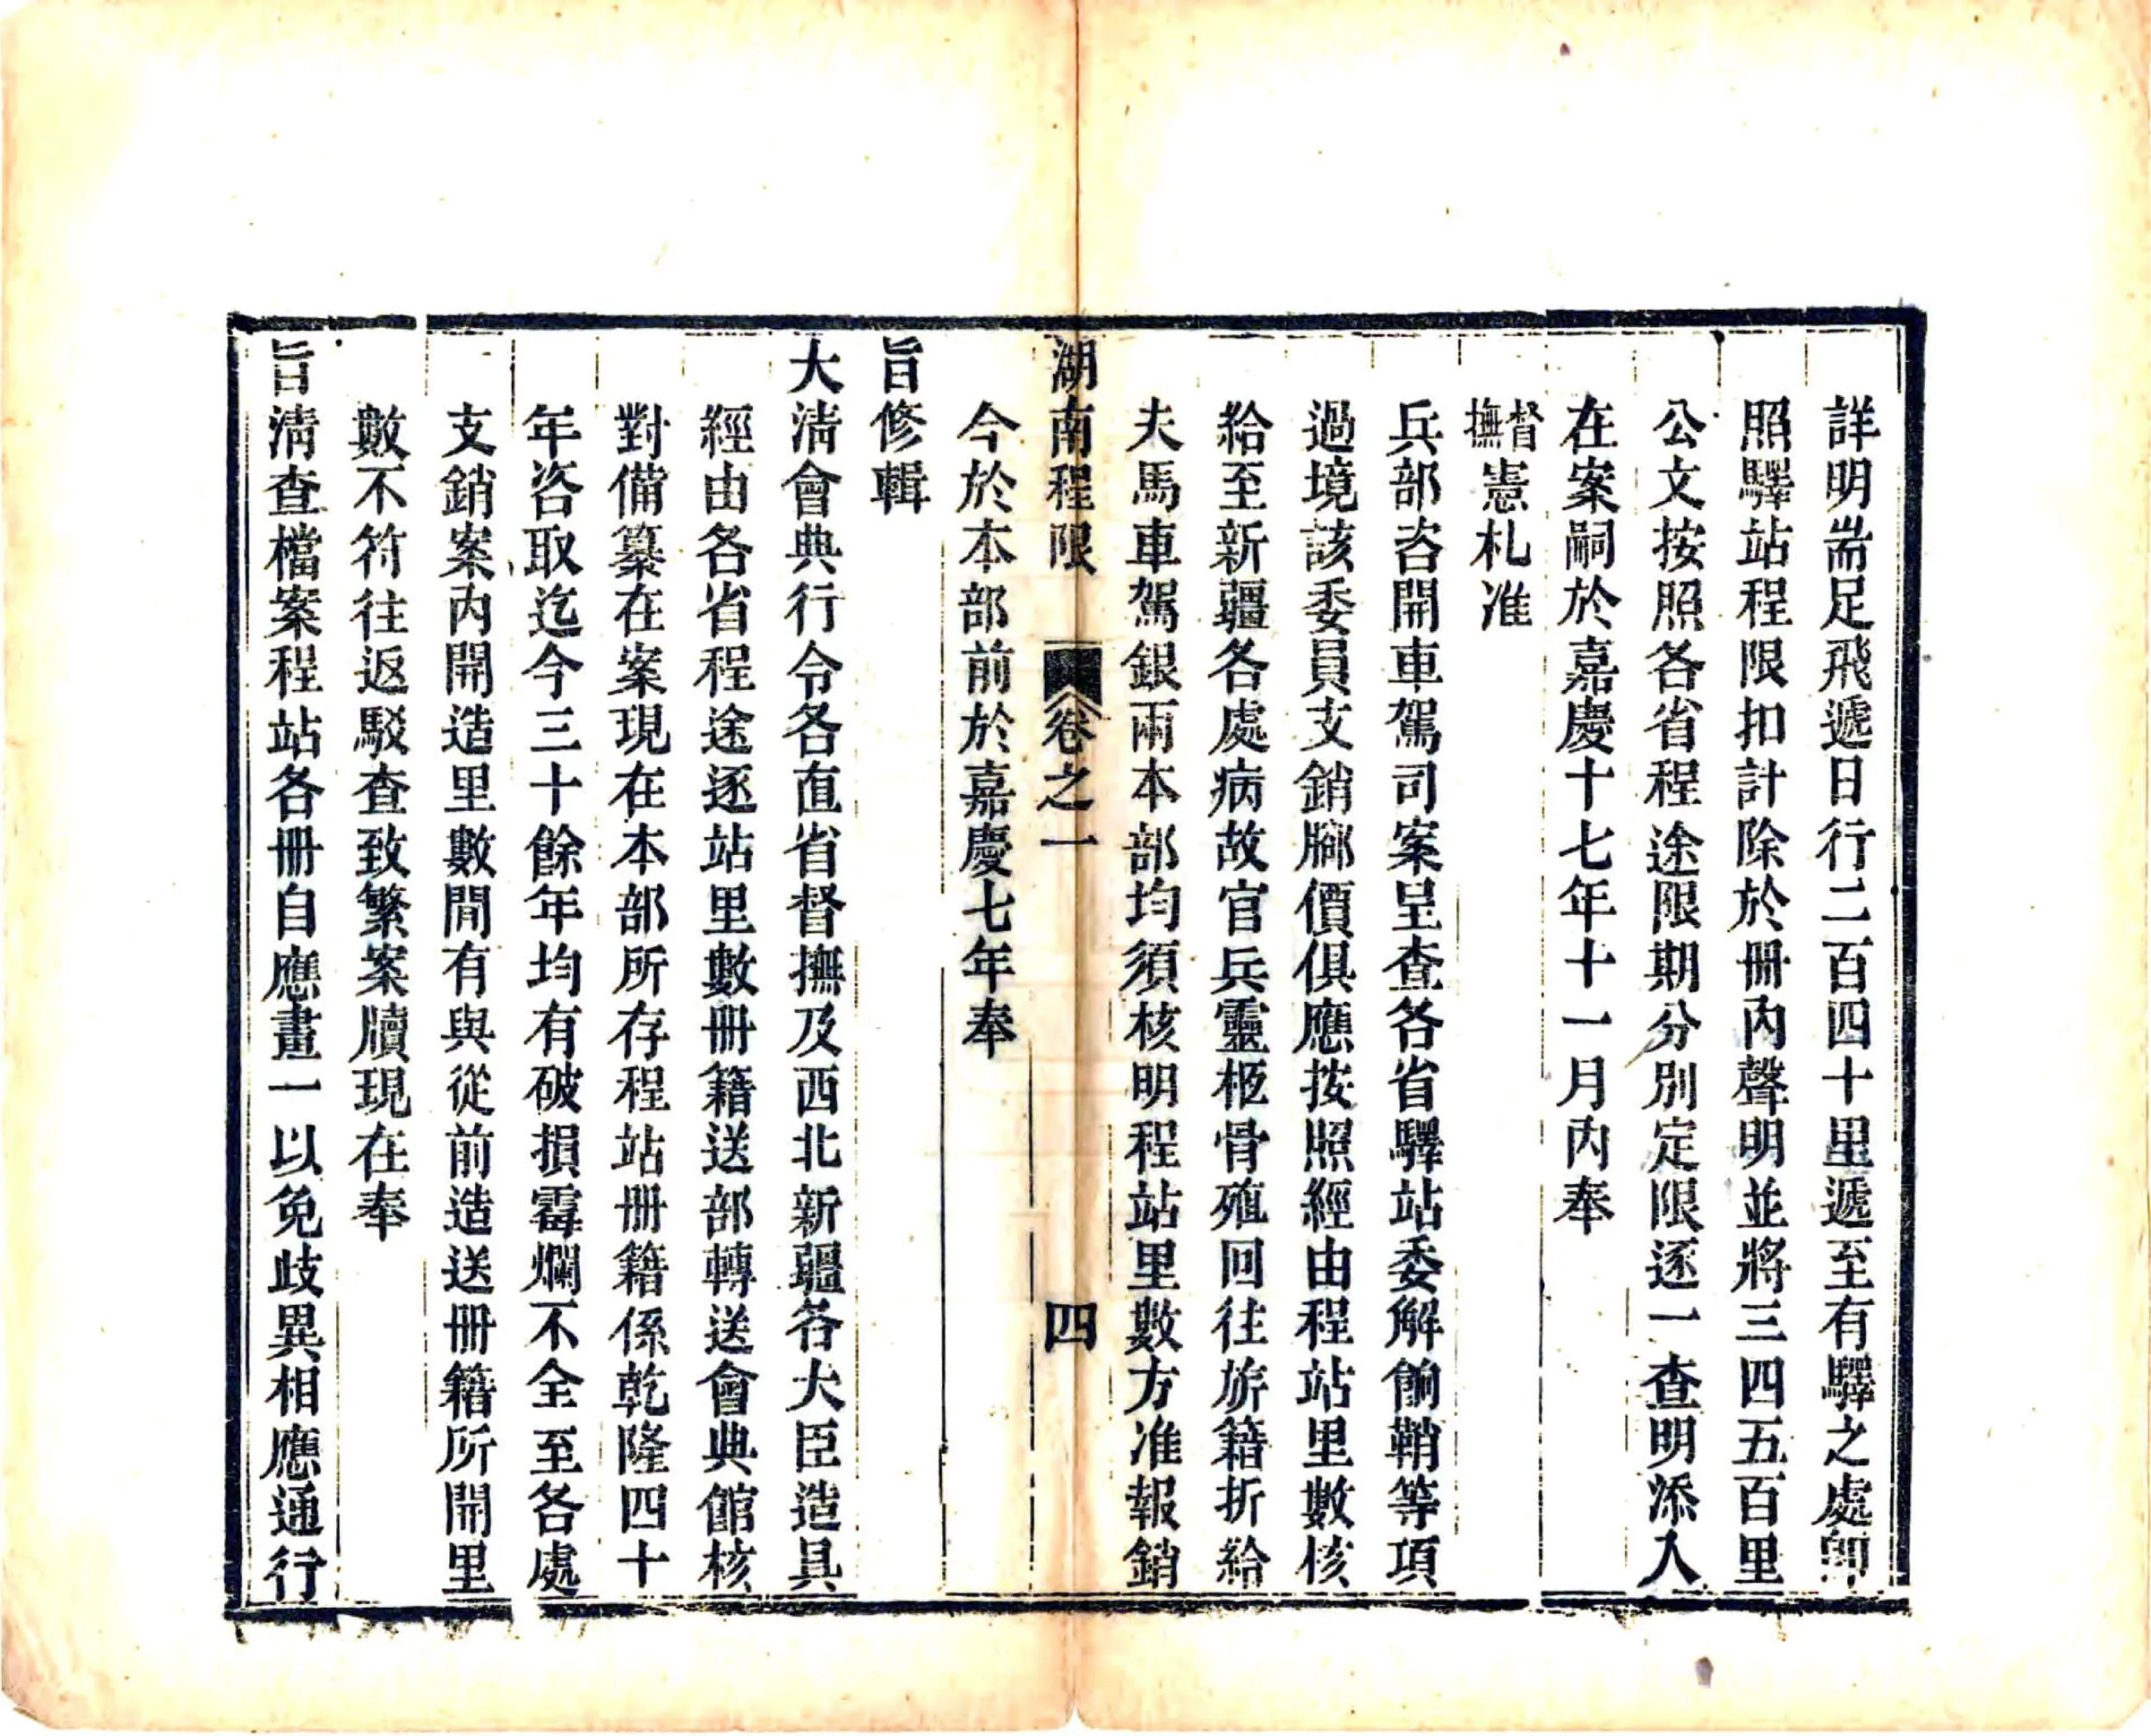 詳明耑足飛遞日行二百四十里遞至有驛之處卽
照驛站程限扣計除於册內聲明並將三四五百里
公文按照各省程途限期分別定限逐一查明添入
在案嗣於嘉慶十七年十一月內奉
督撫憲札准
兵部咨開車駕司案呈查各省驛站委解餉鞘等項
過境該委員支銷腳價俱應按照經由程站里數核
給至新疆各處病故官兵靈柩骨殖回往旂籍折給
夫馬車駕銀兩本部均須核明程站里數方准報銷
湖南程限 卷之一 四
今於本部前於嘉慶七年奉
旨修輯
大淸會典行令各直省督撫及西北新疆各大臣造具
經由各省程途逐站里數册籍送部轉送會典館核
對備纂在案現在本部所存程站册籍係乾隆四十
年咨取迄今三十餘年均有破損霉爛不全至各處
支銷案內開造里數間有與從前造送册籍所開里
數不符往返駁查致繁案牘現在奉
旨淸查檔案程站各册自應畫一以免歧異相應通行